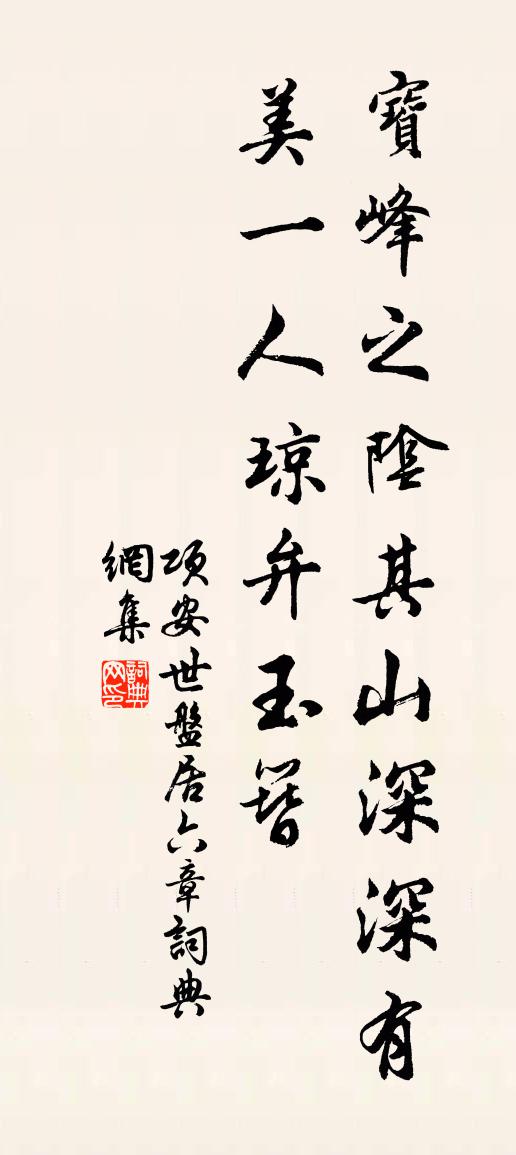 寶峰之陰其山深深有
美一人瓊弁玉簪
項安世盤居六章詞典
網集
詞典網印